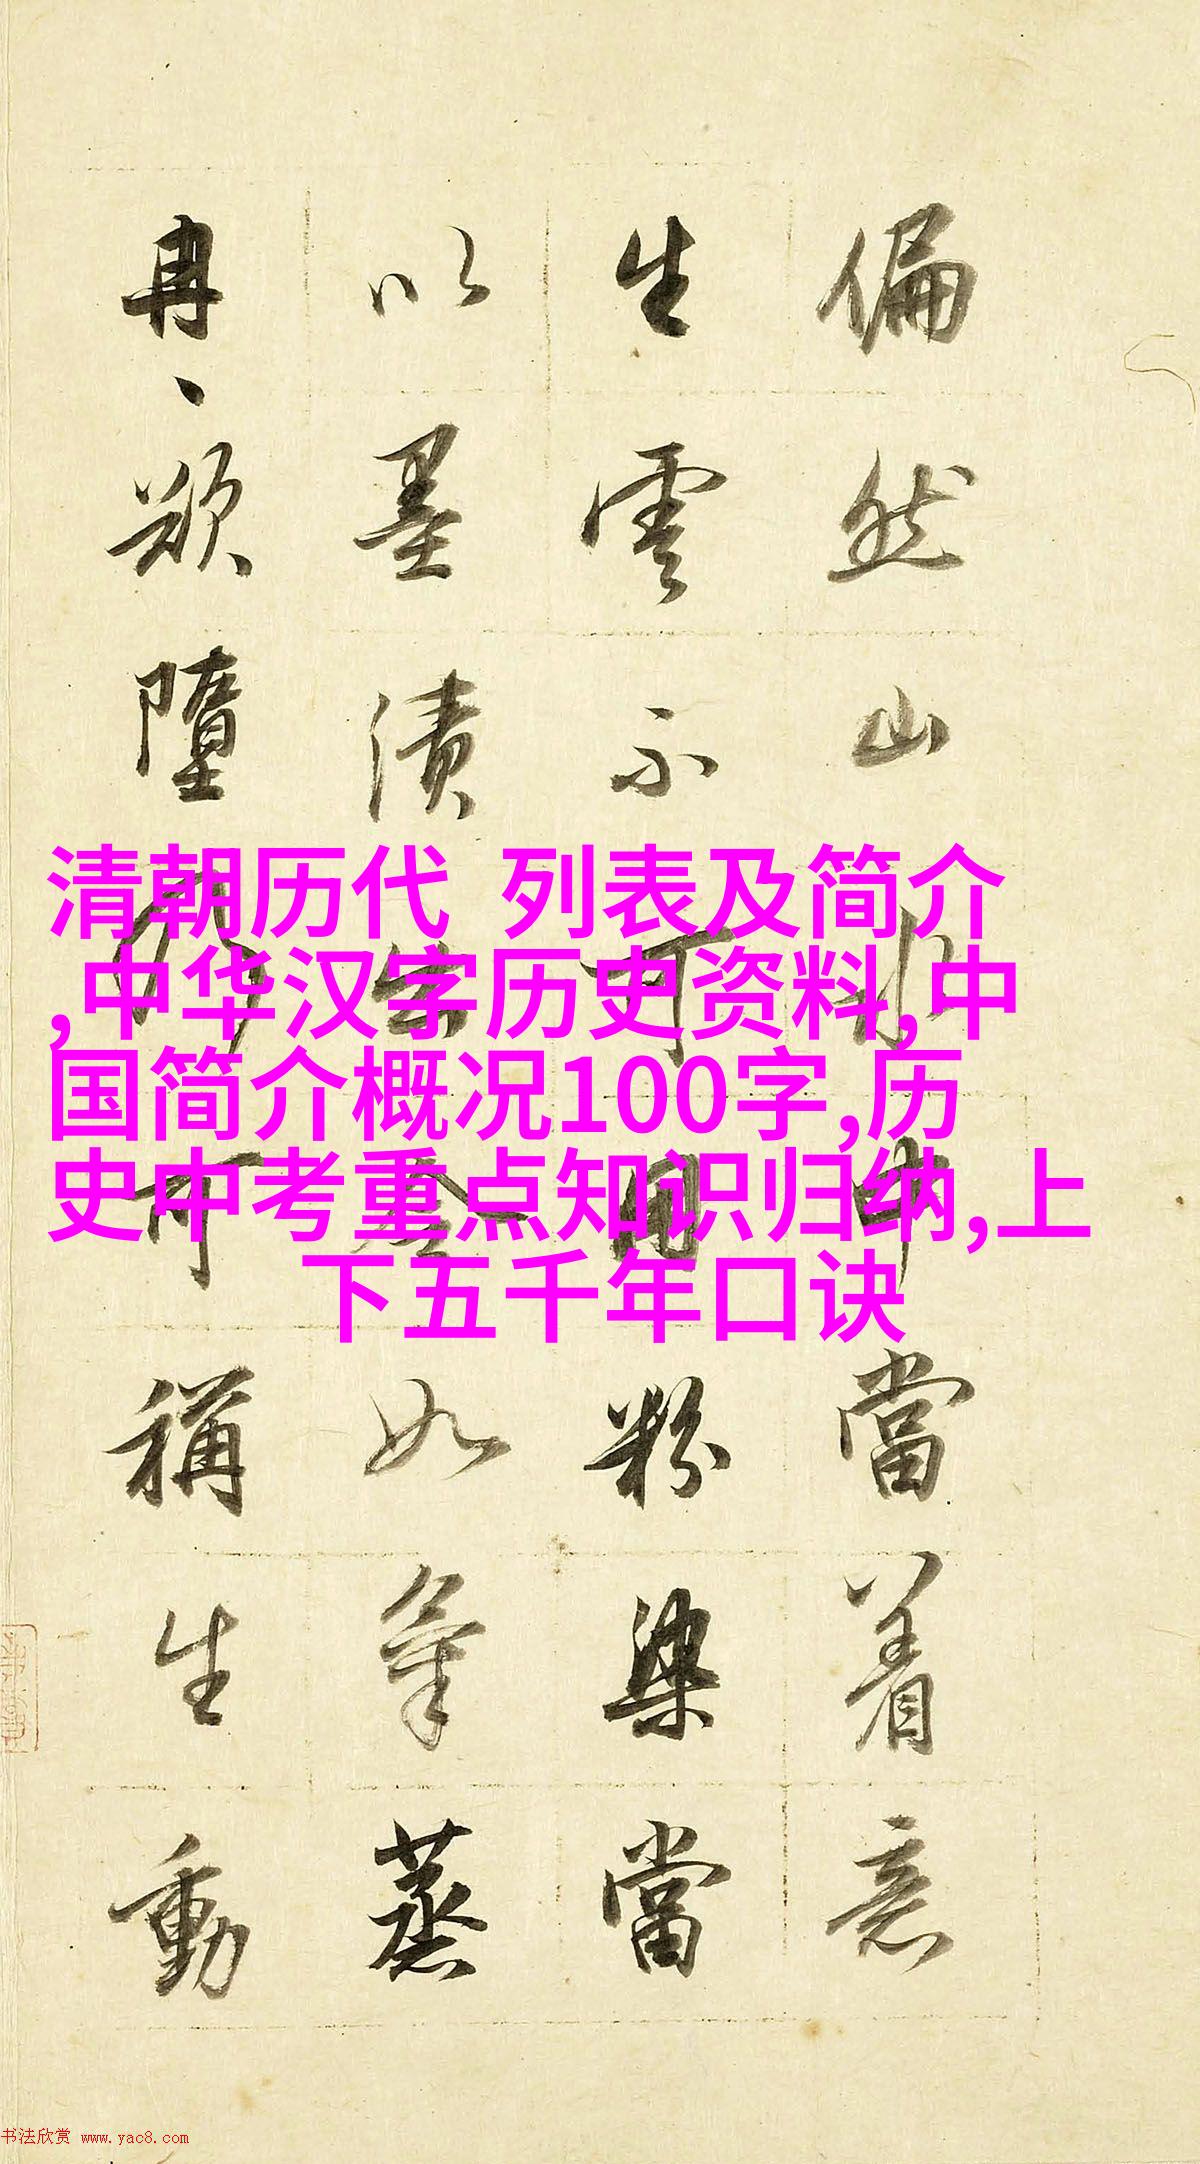 偏然山水中當着意
生雲不可用粉染當
以墨漬出令如氣蒸
冉、欲墮乃可稱生動
清朝历代 列表及简介
,中华汉字历史资料,中
国简介概况100字,历
史中考重点知识归纳,上
下五千年口诀
书法欣赏 www.yac8.com